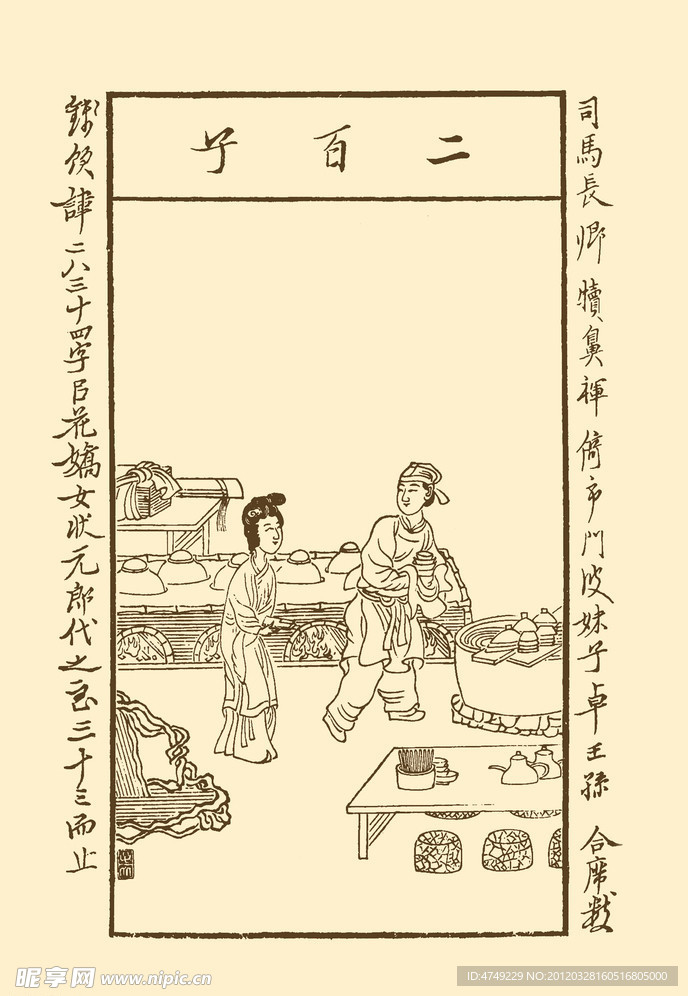 二百子
司馬長卿 犢鼻褌 倚市門 彼姝子 卓王孫 合席數
錢飲 諱二八三十四字 㠯花嬌女狀元郎代之 至三十三而止
昵享网 www.nipic.cn
ID:4749229 NO:20120328160516805000